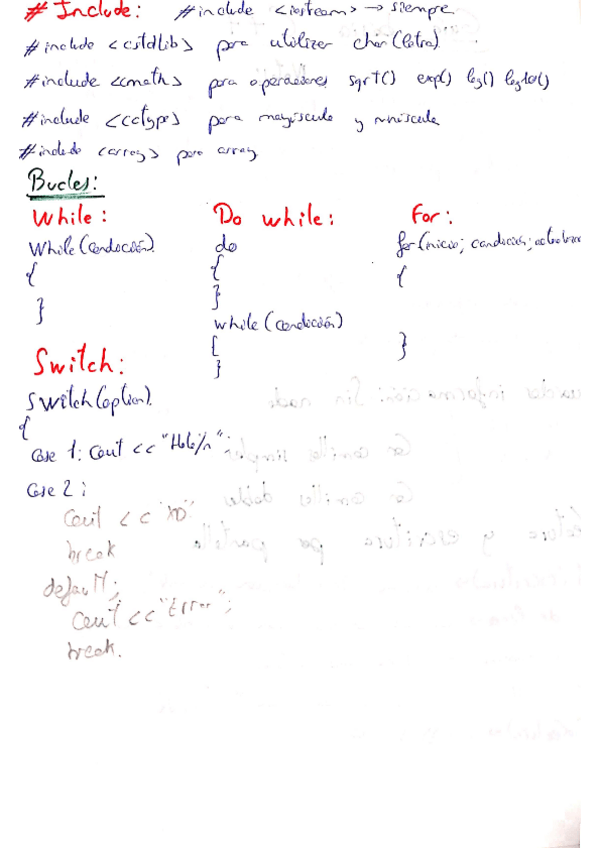 # Include: #include <iosteam> → siempre
#include <cstdlib> para utilizar char (letra)
#include <cmath> para operaciones sqrt() exp() log() log10()
#include <cctype> para mayúscula y minúscula
#include <array> para array
Bucles:
While: Do while: For:
While (condición) do for (inicio; condición; actualizar
{ { {
} }
while (condición)
{ }
}
Switch:
Switch (option)
{
Case 1: Cout << "Hola\n";
Case 2:
Cout << "XD"
break
default:
Cout << "Error";
break.